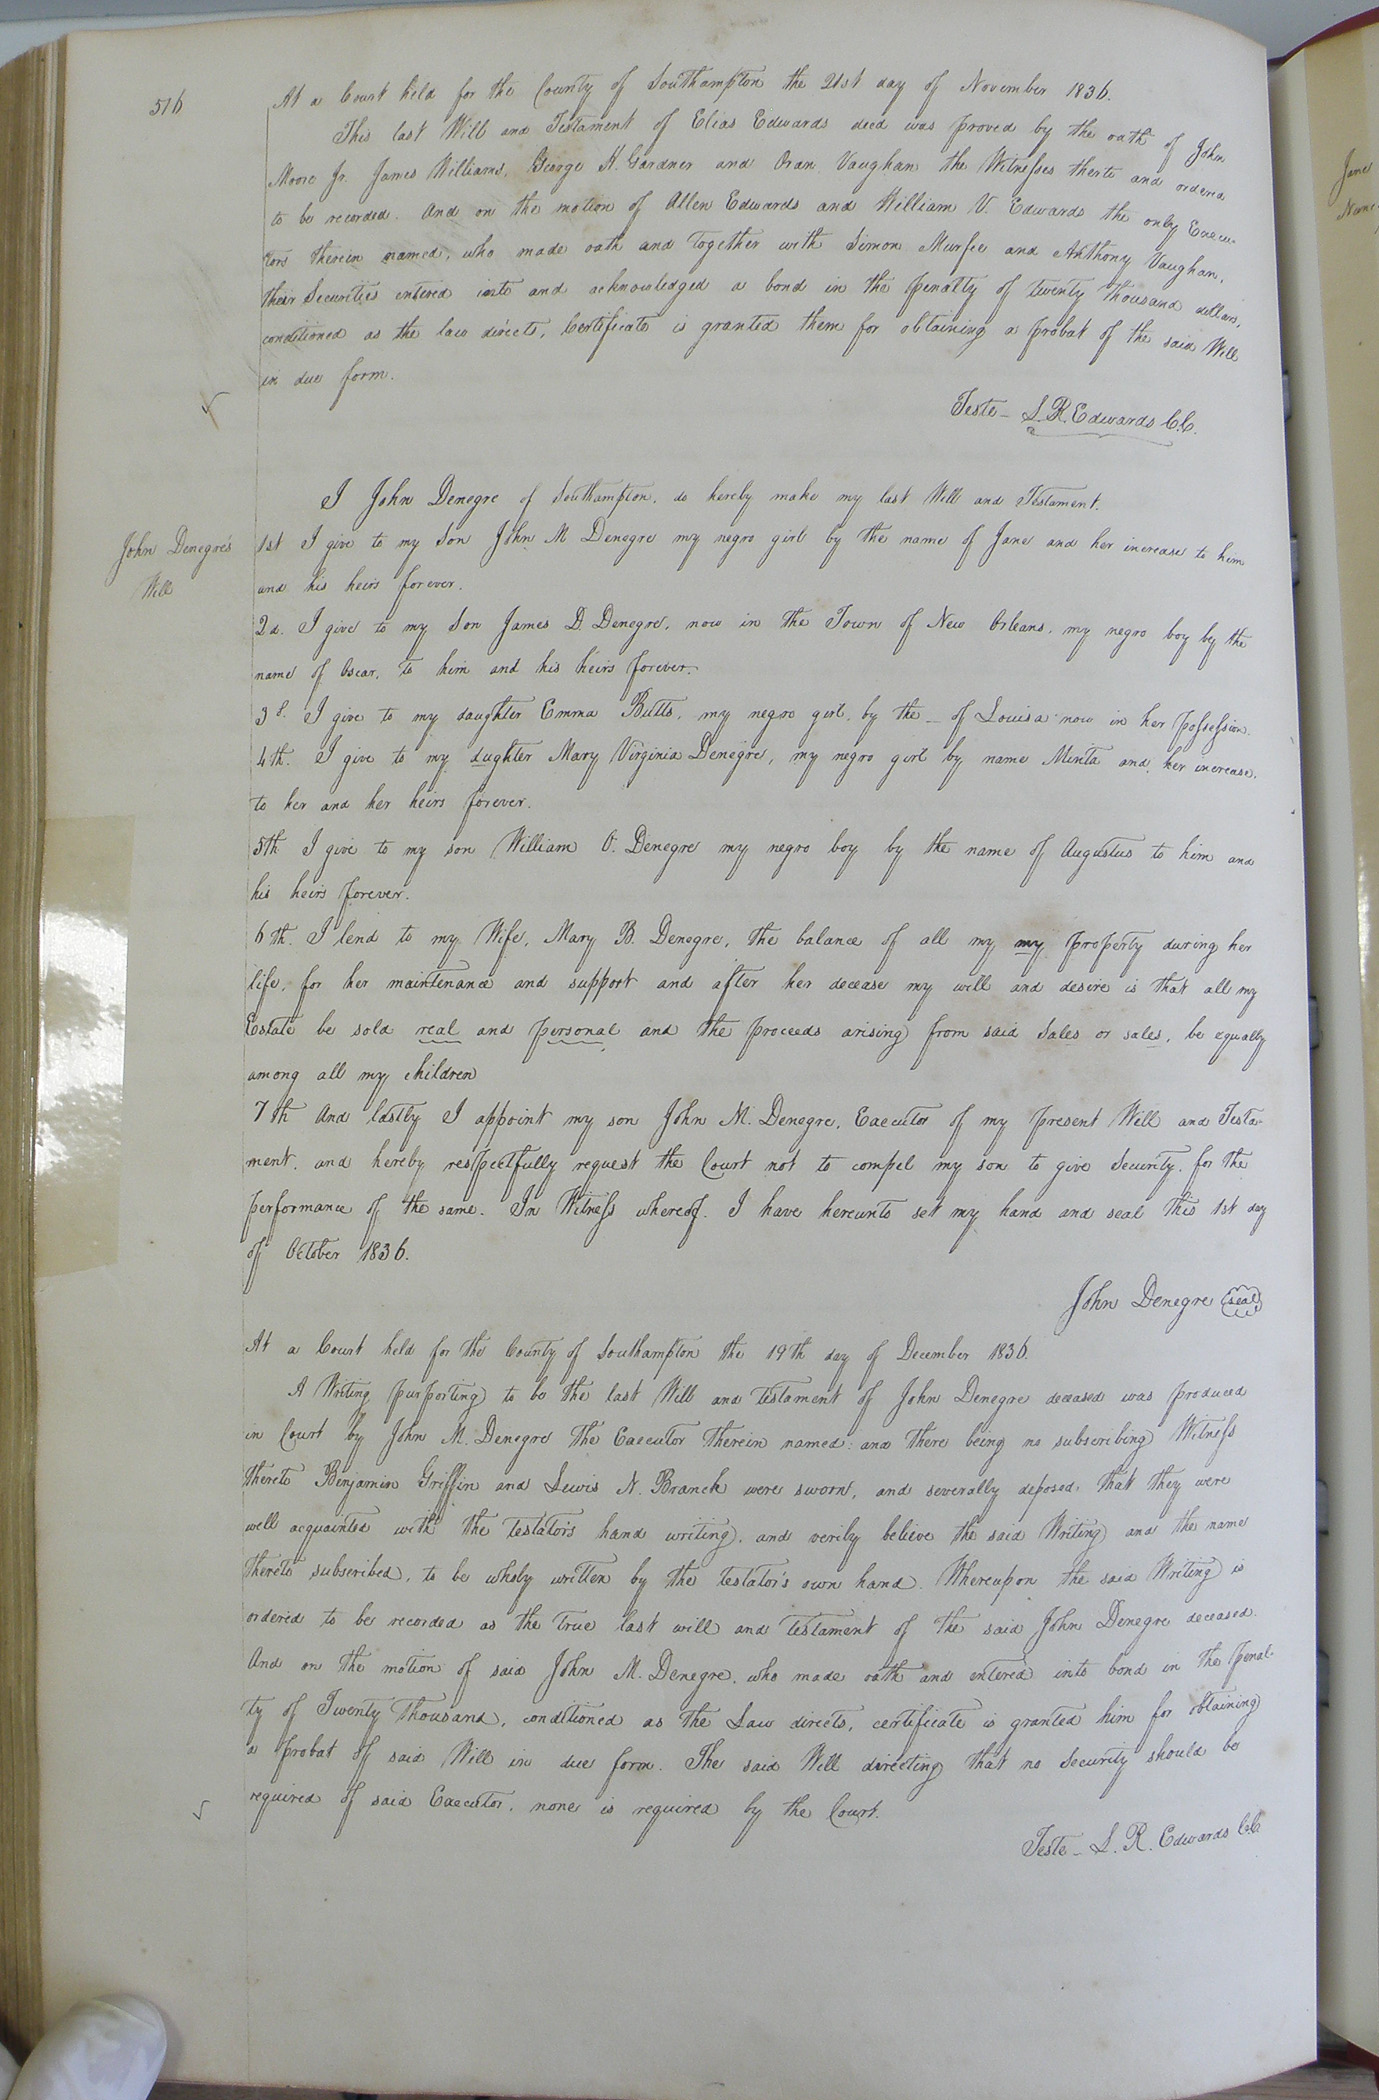 516
At a Court held for the County of Southampton the 21st day of November 1836.
This last Will and Testament of Elias Edwards decd was proved by the oath of John
Moore Jr. James Williams, George H. Gardner and Oran Vaughan the Witnesses thereto and ordered
to be recorded. And on the motion of Allen Edwards and William V. Edwards the only Execu-
tors therein named, who made oath and together with Simon Murfee and Anthony Vaughan,
their Securities entered into and acknowledged a bond in the penalty of twenty thousand dollars,
conditioned as the law directs, Certificate is granted them for obtaining a probat of the said Will
in due form.
Teste - L. R. Edwards C.C.
John Denegre's
Will
I John Denegre of Southampton, do hereby make my last Will and Testament.
1st I give to my Son John M Denegre my negro girl by the name of Jane and her increase to him
and his heirs forever.
2d. I give to my Son James D. Denegre, now in the Town of New Orleans, my negro boy by the
name of Oscar, to him and his heirs forever.
3d. I give to my daughter Emma Butts, my negro girl, by the - of Louisa now in her possession.
4th. I give to my dughter Mary Virginia Denegre, my negro girl by name Minta and her increase,
to her and her heirs forever.
5th I give to my son William O. Denegre my negro boy by the name of Augustus to him and
his heirs forever.
6th. I lend to my Wife, Mary B. Denegre, the balance of all my my property during her
life, for her maintenance and support and after her decease my will and desire is that all my
Estate be sold real and personal and the proceeds arising from said Sales or sales, be equally
among all my children
7th And lastly I appoint my son John M. Denegre, Executor of my present Will and Testa-
ment. and hereby respectfully request the Court not to compel my son to give Security. for the
performance of the same. In Witness whereof. I have hereunto set my hand and seal this 1st day
of October 1836.
John Denegre seal
At a Court held for the County of Southampton the 19th day of December 1836.
A Writing purporting to be the last Will and testament of John Denegre deceased was produced
in Court by John M. Denegre the Executor therein named: and there being no subscribing Witness
thereto Benjamin Griffin and Lewis N. Branch were sworn, and severally deposed, that they were
well acquainted with the testators hand writing, and verily believe the said Writing and the name
thereto subscribed, to be wholy written by the testator's own hand. Whereupon the said Writing is
ordered to be recorded as the true last will and testament of the said John Denegre deceased.
And on the motion of said John M. Denegre, who made oath and entered into bond in the penal-
ty of Twenty Thousand, conditioned as the Law directs, certificate is granted him for obtaining
a probat of said Will in due form. The said Will directing that no Security should be
required of said Executor, none is required by the Court.
Teste - L. R. Edwards C.C.
Jane